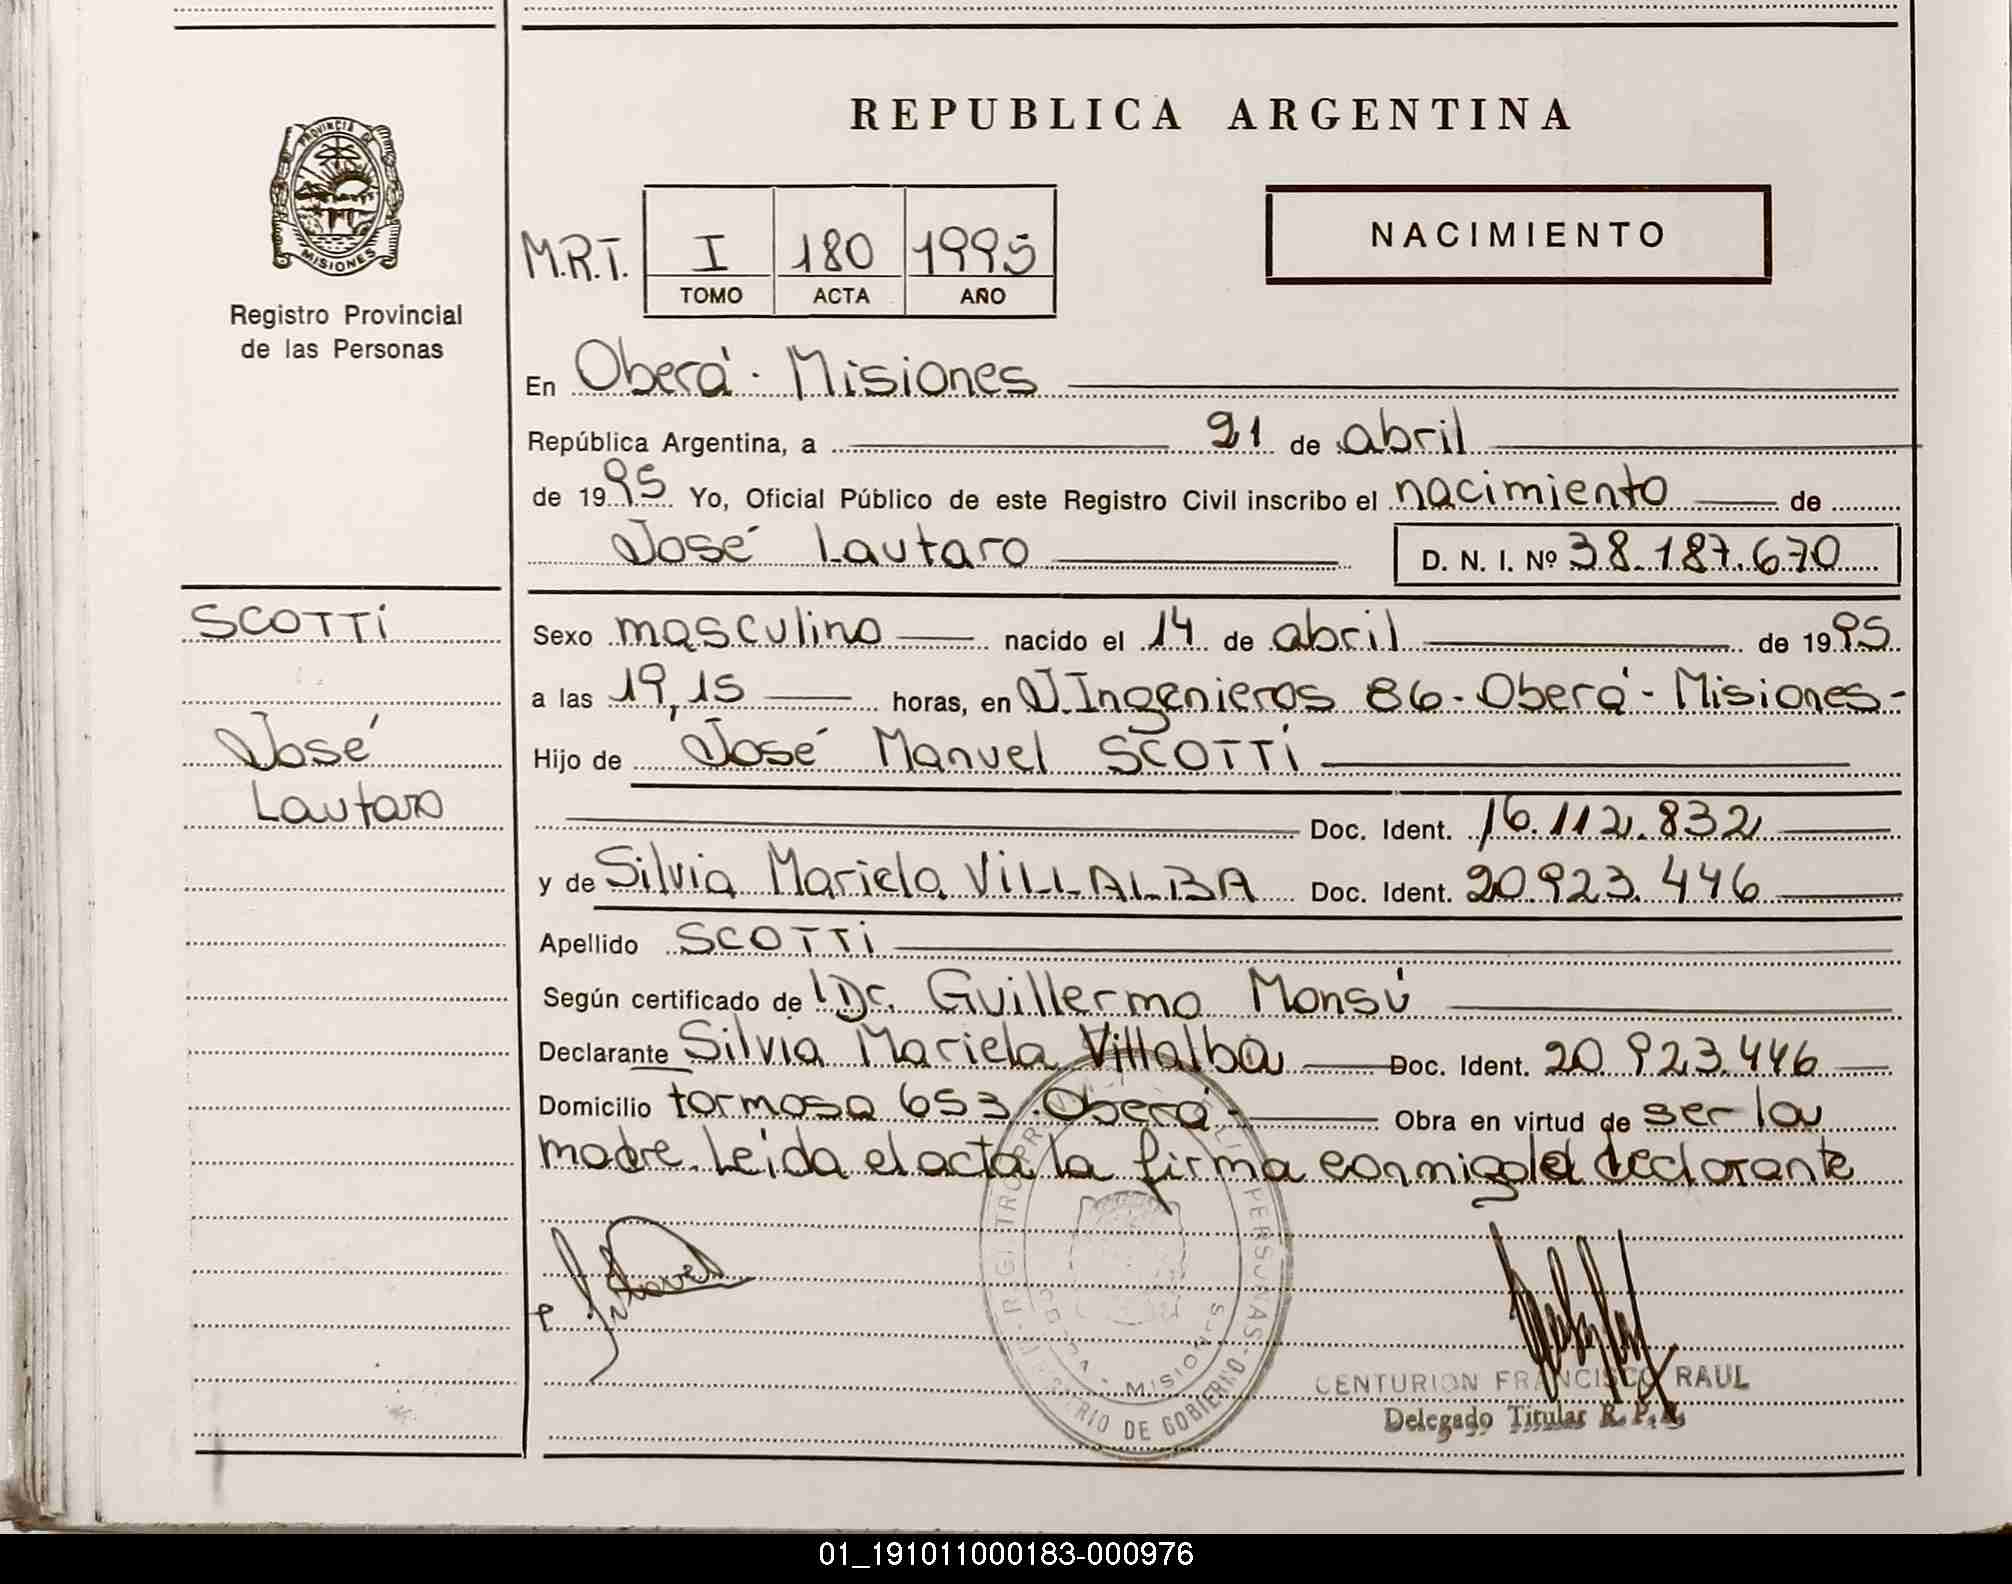 REPUBLICA ARGENTINA
PROVINCIA DE
MISIONES
Registro Provincial
de las Personas
NACIMIENTO
M.R.T. I 180 1995
TOMO ACTA AÑO
En Oberá - Misiones
República Argentina, a 21 de abril
de 1995 Yo, Oficial Público de este Registro Civil inscribo el nacimiento de
José Lautaro D. N. I. Nº 38.187.670
SCOTTi
José
Lautaro
Sexo masculino nacido el 14 de abril de 1995
a las 19,15 horas, en J. Ingenieros 86 - Oberá - Misiones -
Hijo de José Manuel SCOTTi
Doc. Ident. 16.112.832
y de Silvia Mariela ViLLALBA Doc. Ident. 20.923.446
Apellido SCOTTi
Según certificado de Dr. Guillermo Monsú
Declarante Silvia Mariela Villalba Doc. Ident. 20.923.446
Domicilio formosa 653. Oberá - Obra en virtud de ser la
madre. Leida el acta la firma conmigo la declarante
MISIONES
DE GOBIERNO
CENTURION FRANCISCO RAUL
Delegado Titular R. P. P.
01_191011000183-000976